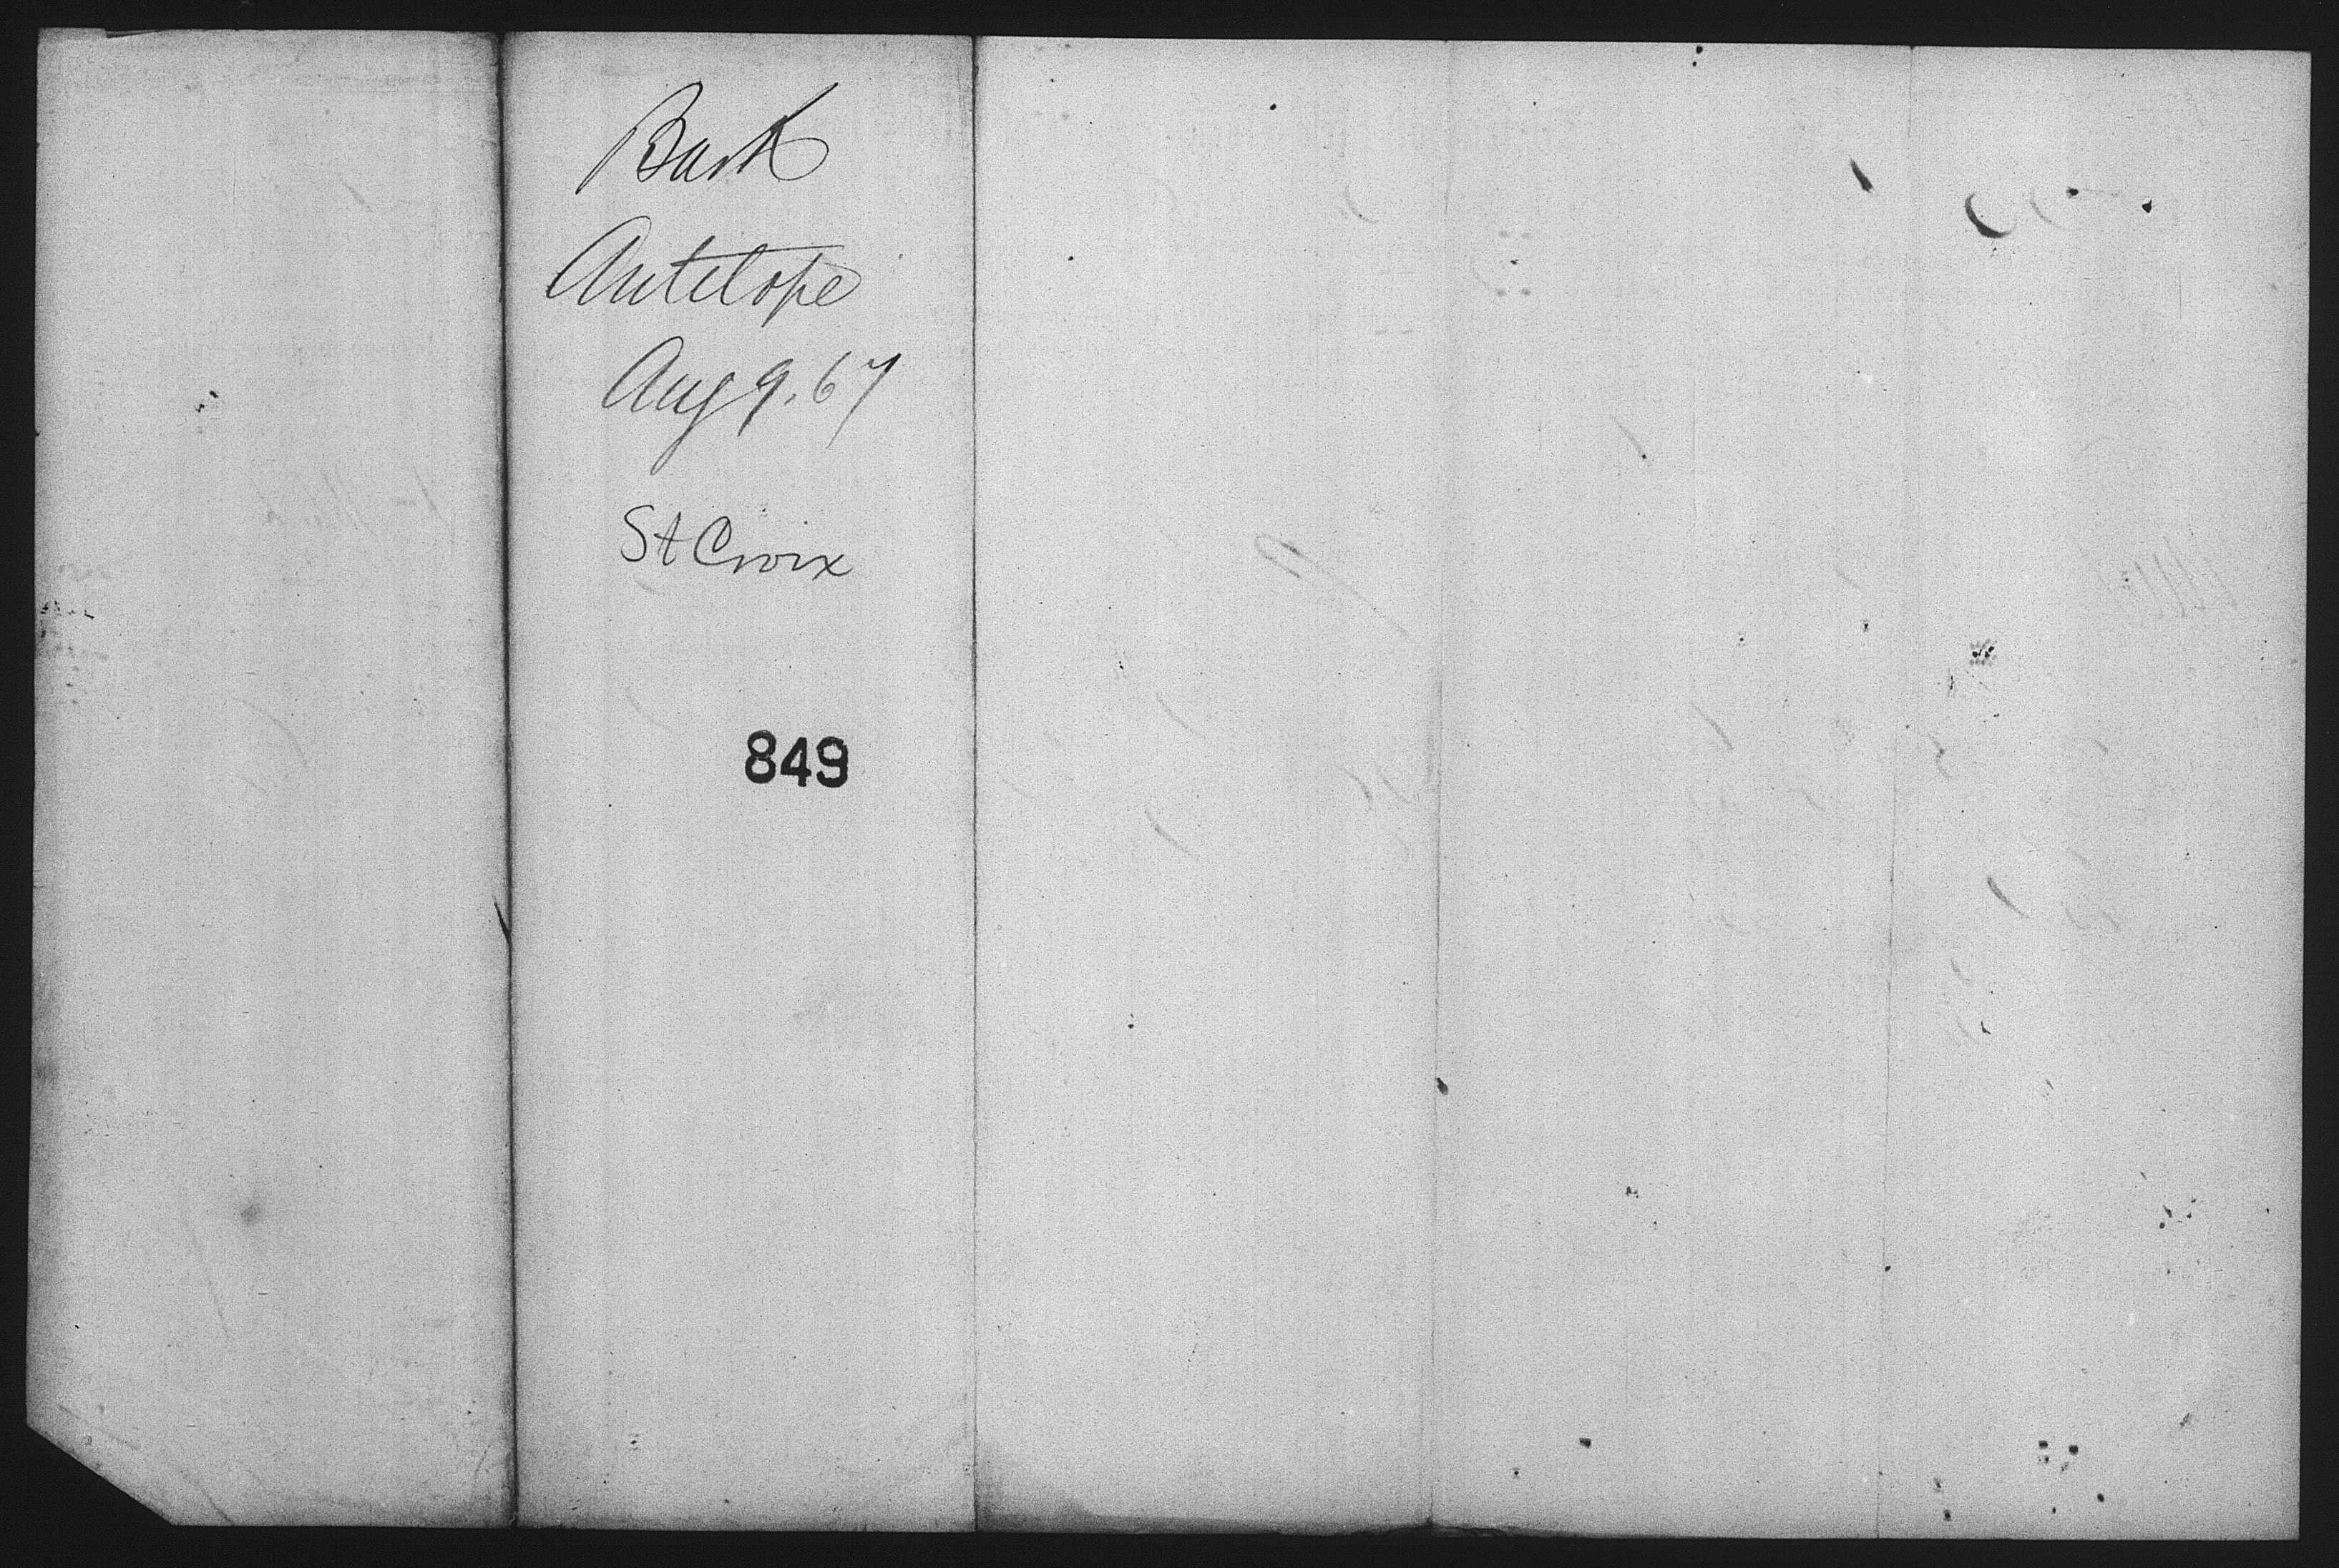 Bark
Antelope
Aug 9. 67
St Croix
849